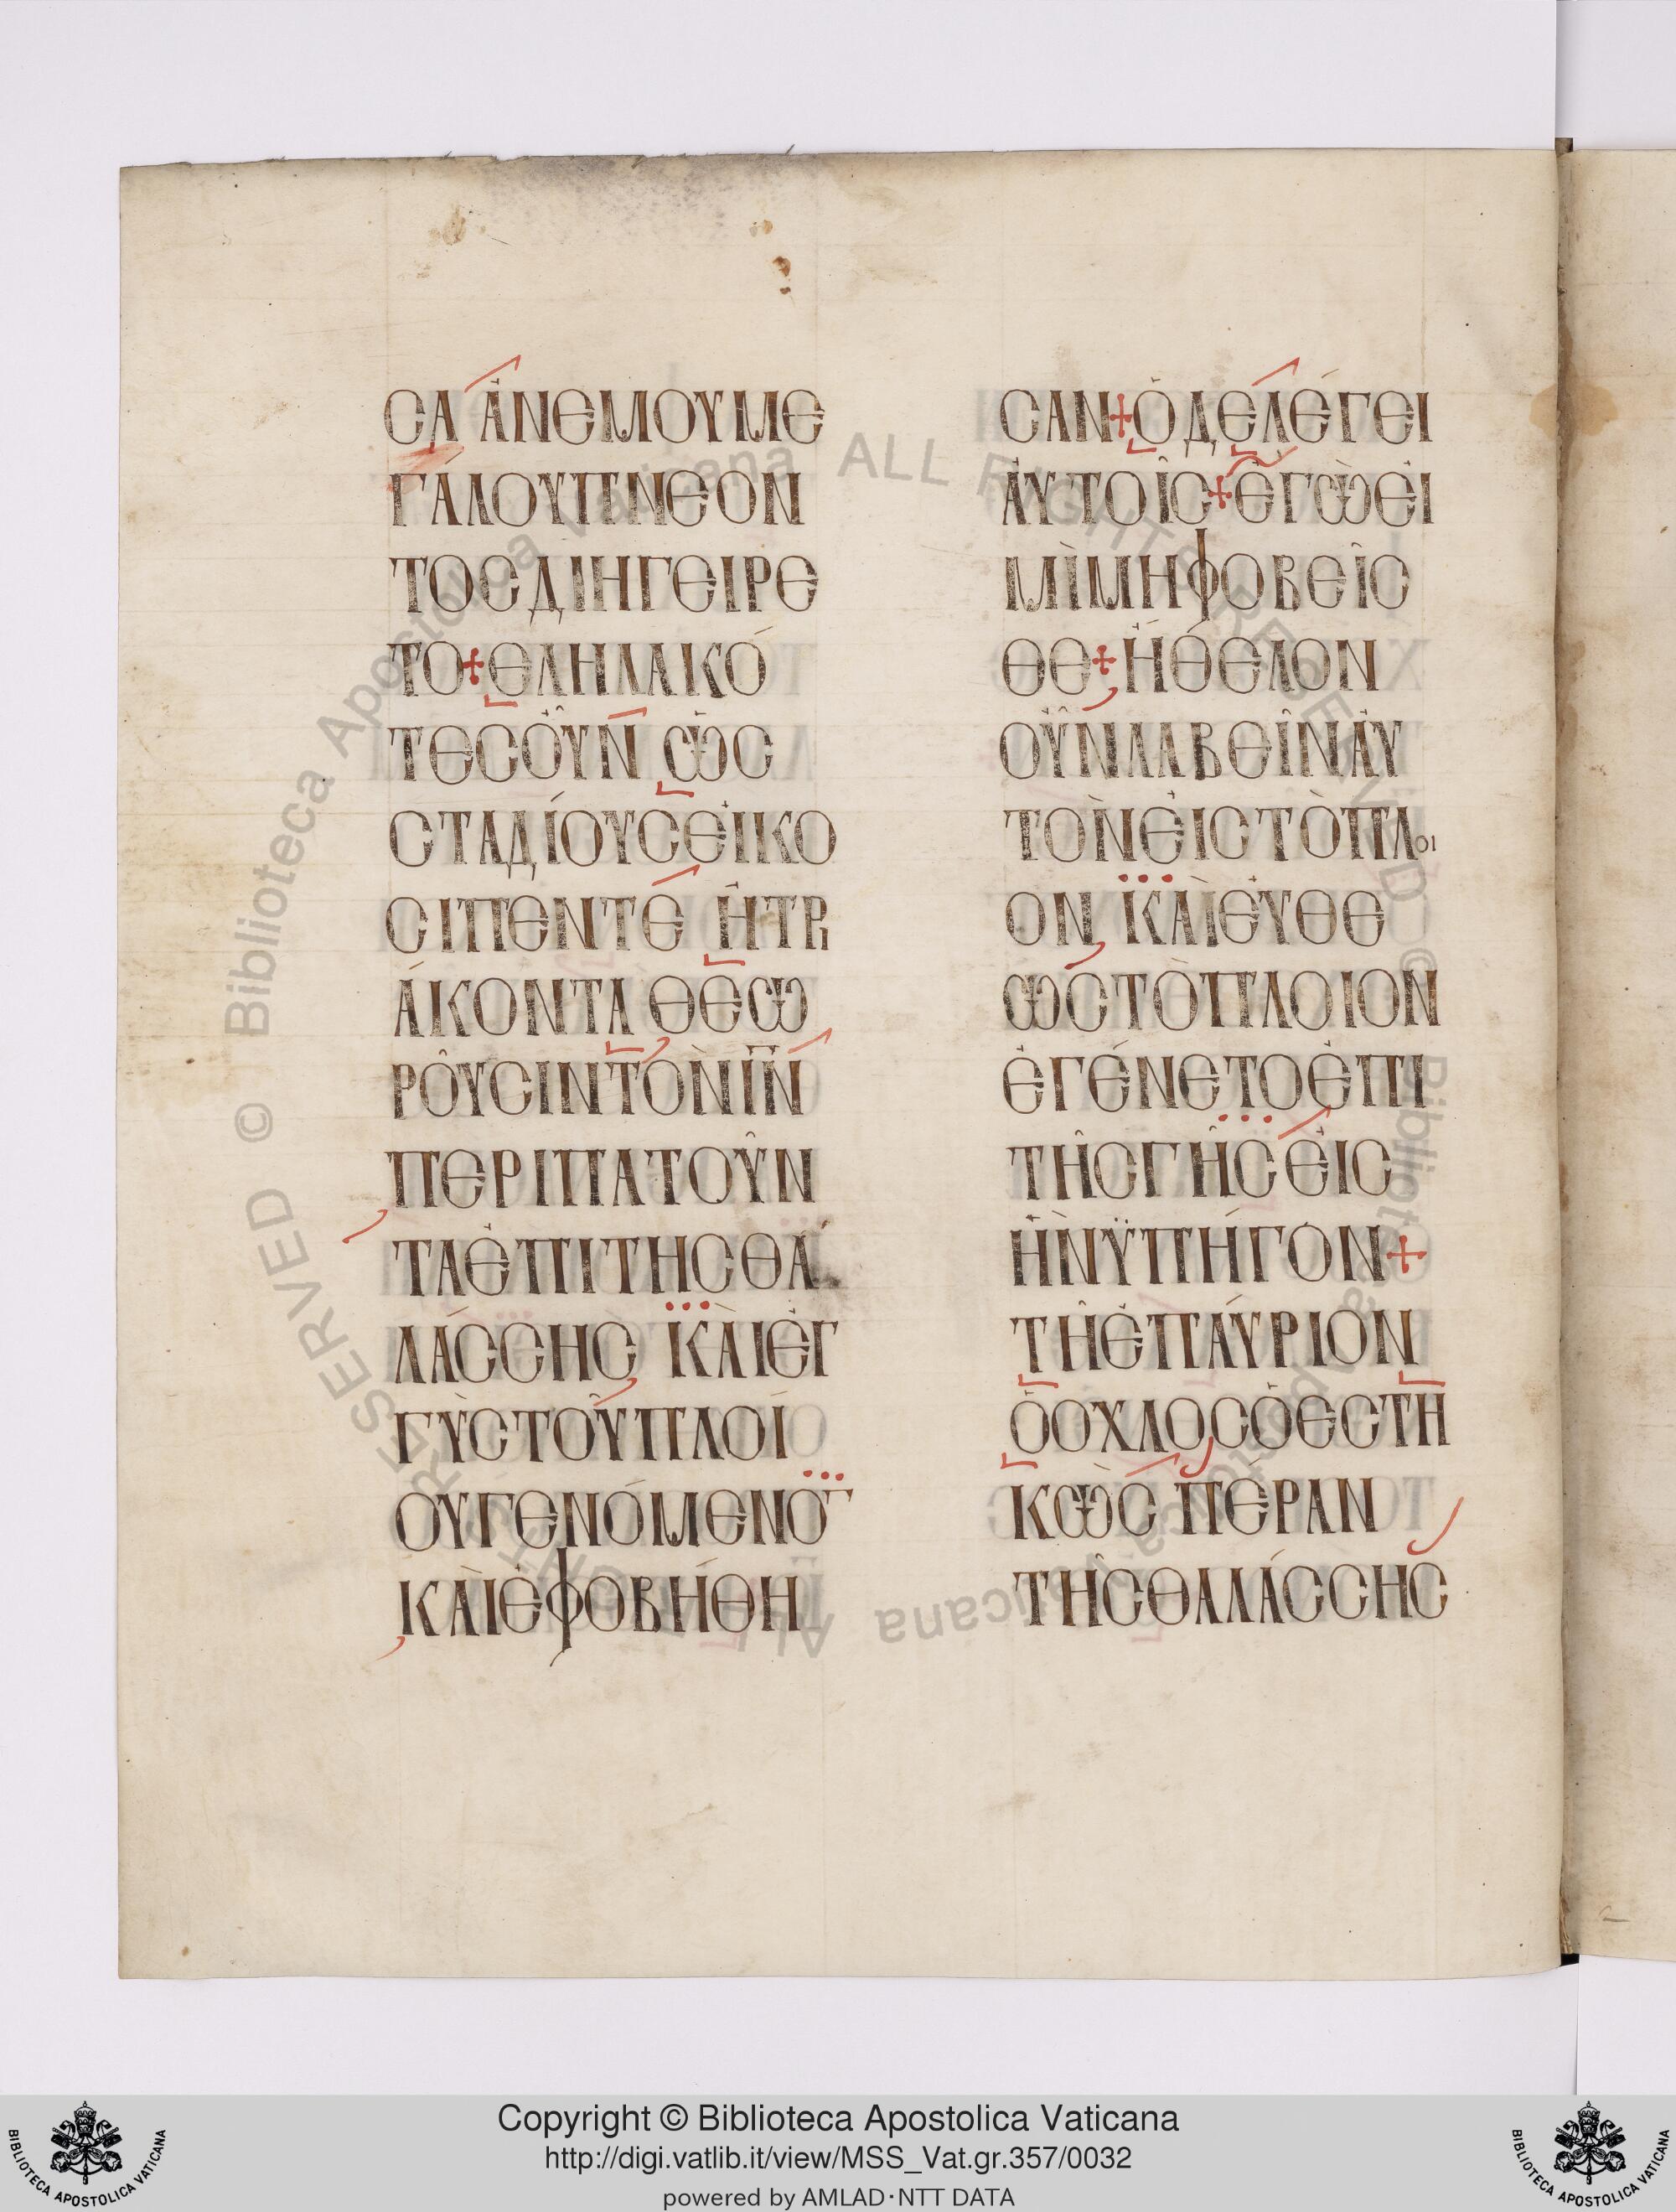 ϹΑ ἈΝΕΜΟΥ ΜΕ
ΓΆΛΟΥ ΠΝΕΟΝ
ΤΟϹ ΔΙΗΓΕΙΡΕ
ΤΟ + ΕΛΗΛΑΚΌ
ΤΕϹ ΟΥ̓͂Ν ὩϹ
ϹΤΑΔΊΟΥϹ ΕἸΚΟ
ϹΙΠΕΝΤΕ Ἢ ΤΡΙ
ΆΚΟΝΤΑ ΘΕΩ
ΡΟΥ͂ϹΙΝ ΤῸΝ ΙΝ̅
ΠΕΡΙΠΑΤΟΥ͂Ν
ΤΑ ἘΠΙ ΤΗϹ ΘΑ
ΛΆϹϹΗϹ ΚΑῚ ἘΓ
ΓῪϹ ΤΟΥ͂ ΠΛΟΊ
ΟΥ ΓΕΝΌΜΕΝΟ̅
ΚΑῚ ἘΦΟΒΉΘΗ
ϹΑΝ + Ὁ ΔΕ ΛΈΓΕΙ
ἈΥΤΟΙ͂Ϲ + ἘΓῺ ΕἸ
ΜῚ ΜΗ ΦΟΒΕΙ͂Ϲ
ΘΕ + ἬΘΕΛΟΝ
ΟΥ̓͂Ν ΛΑΒΕΙ͂Ν ἈΥ
ΤῸΝ ΕἸϹ ΤῸ ΠΛΟΙ
ΟΝ ΚΑῚ ΕΥ̓ΘΕ
ΩϹ ΤῸ ΠΛΟΙΟΝ
ἘΓΈΝΕΤΟ ἘΠΙ
ΤΗ͂Ϲ ΓΗ͂Ϲ ΕἸϹ
ἫΝ ΫΠΗΓΟΝ +
ΤΗ͂ ἘΠΆΥΡΙΟΝ
Ὁ ΟΧΛΟϹ Ὁ ΕϹΤΗ
ΚῺϹ ΠΈΡΑΝ
ΤΗ͂Ϲ ΘΑΛΆϹϹΗϹ
Copyright © Biblioteca Apostolica Vaticana
http://digi.vatlib.it/view/MSS_Vat.gr.357/0032
powered by AMLAD·NTT DATA
BIBLIOTECA APOSTOLICA VATICANA
BIBLIOTECA APOSTOLICA VATICANA
© Biblioteca Apostolica Vaticana ALL RIGHTS RESERVED